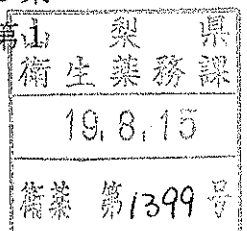 第1
山梨県
衛生薬務課
19.8.15
衛薬 第1399号